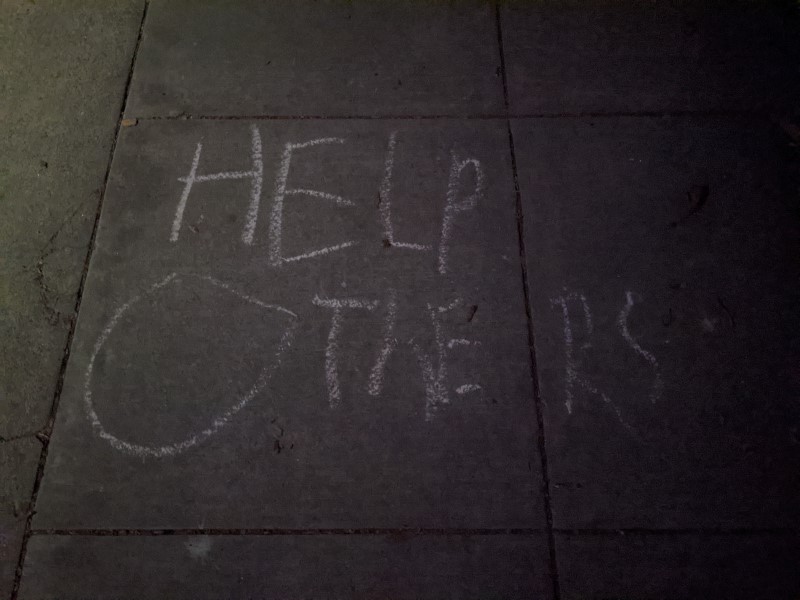 HELP
OTHERS